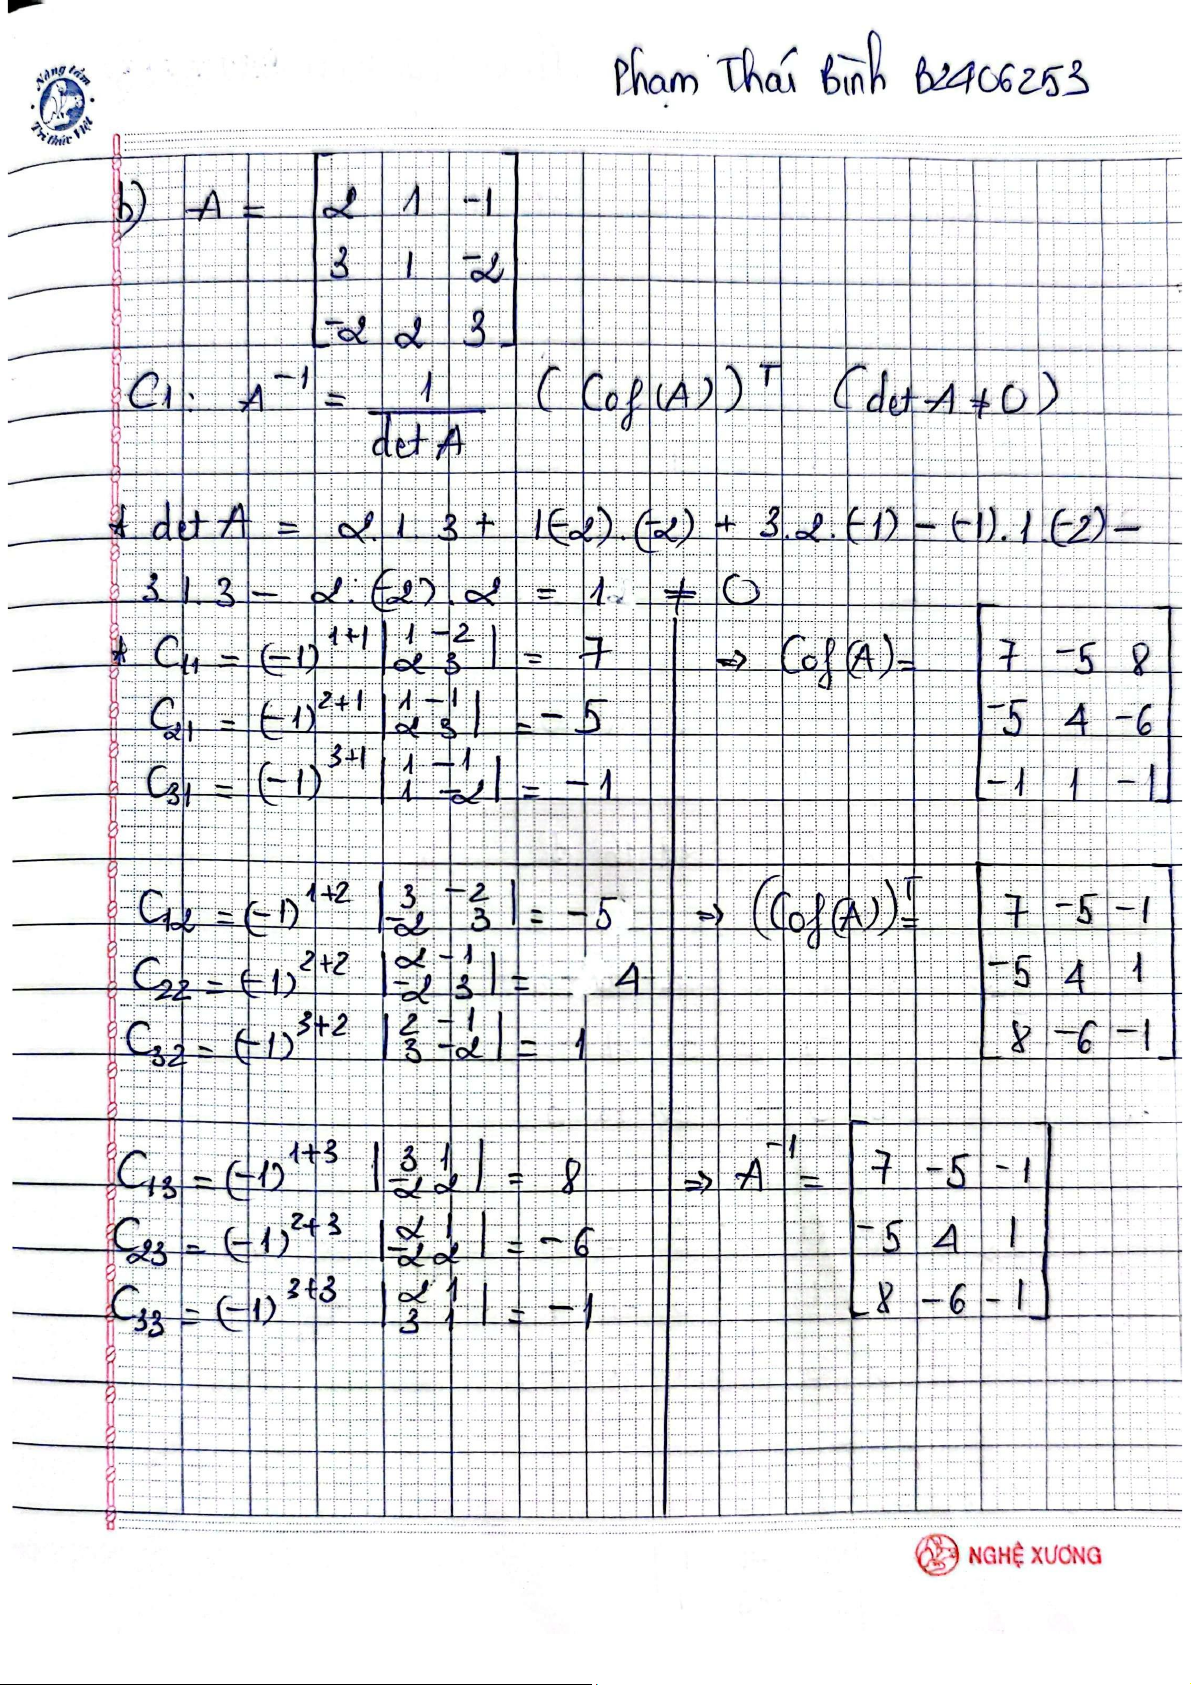 Nâng tầm
Tri thức Việt
Phạm Thái Bình B2406253
b) A = [2 1 -1
3 1 -2
-2 2 3]
C1: A^-1 = 1/det A (Cof(A))^T (det A ≠ 0)
* det A = 2.1.3 + 1(-2).(-2) + 3.2.(-1) - (-1).1.(-2) -
3.1.3 - 2.(-2).2 = 1 ≠ 0
* C11 = (-1)^1+1 |1 -2
2 3| = 7
C21 = (-1)^2+1 |1 -1
2 3| = -5
C31 = (-1)^3+1 |1 -1
1 -2| = -1
⇒ Cof(A) = [7 -5 8
-5 4 -6
-1 1 -1]
C12 = (-1)^1+2 |3 -2
-2 3| = -5
C22 = (-1)^2+2 |2 -1
-2 3| = - 4
C32 = (-1)^3+2 |2 -1
3 -2| = 1
⇒ (Cof(A))^T = [7 -5 -1
-5 4 1
8 -6 -1]
C13 = (-1)^1+3 |3 1
-2 2| = 8
C23 = (-1)^2+3 |2 1
-2 2| = -6
C33 = (-1)^3+3 |2 1
3 1| = -1
⇒ A^-1 = [7 -5 -1
-5 4 1
8 -6 -1]
NGHỆ XƯƠNG